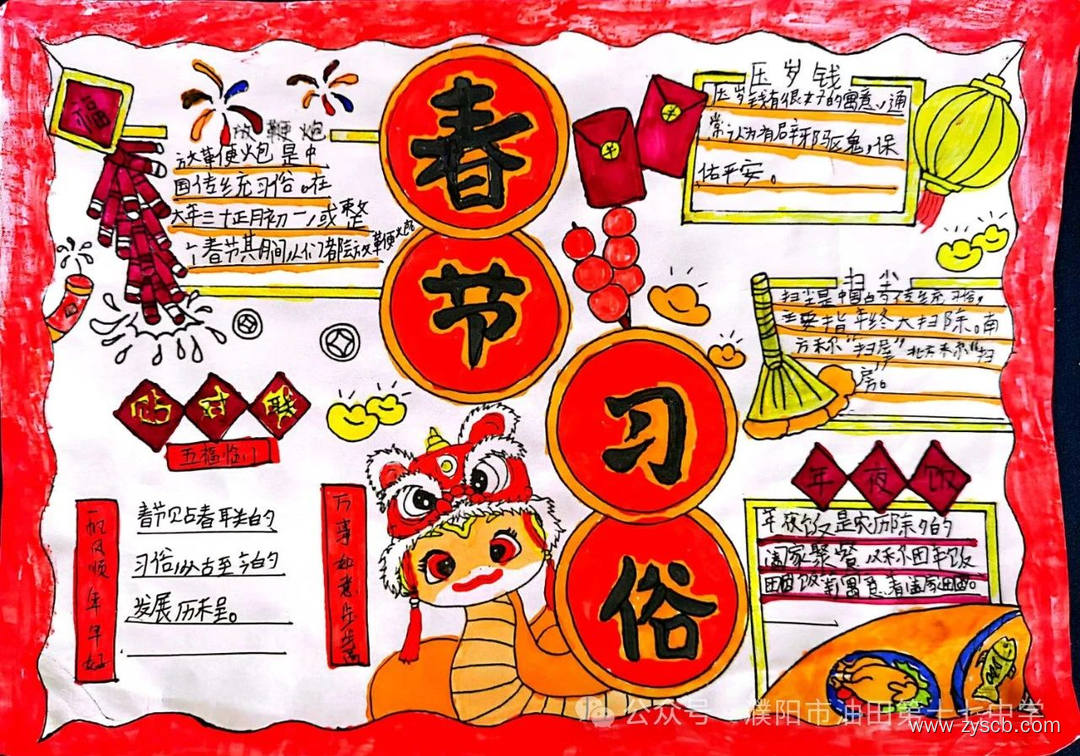 春节习俗
福
放鞭炮
放鞭炮是中
国传统习俗。在
大年三十正月初一/或整
个春节其间人们都会放鞭炮
贴对联
五福临门
一帆风顺年年好
万事如意步步高
春节贴春联的
习俗,从古至今的
发展历程。
压岁钱
压岁钱有很好的寓意,通
常认为有辟邪驱鬼,保
佑平安。
扫尘
扫尘是中国的传统习俗,
主要指年终大扫除。南
方称“扫屋”北方称“扫
房”。
年夜饭
年夜饭是农历除夕的
阖家聚餐又称团年饭
团圆饭等寓意着阖家团圆。
公众号·濮阳市油田第十七中学
www.zyscb.com